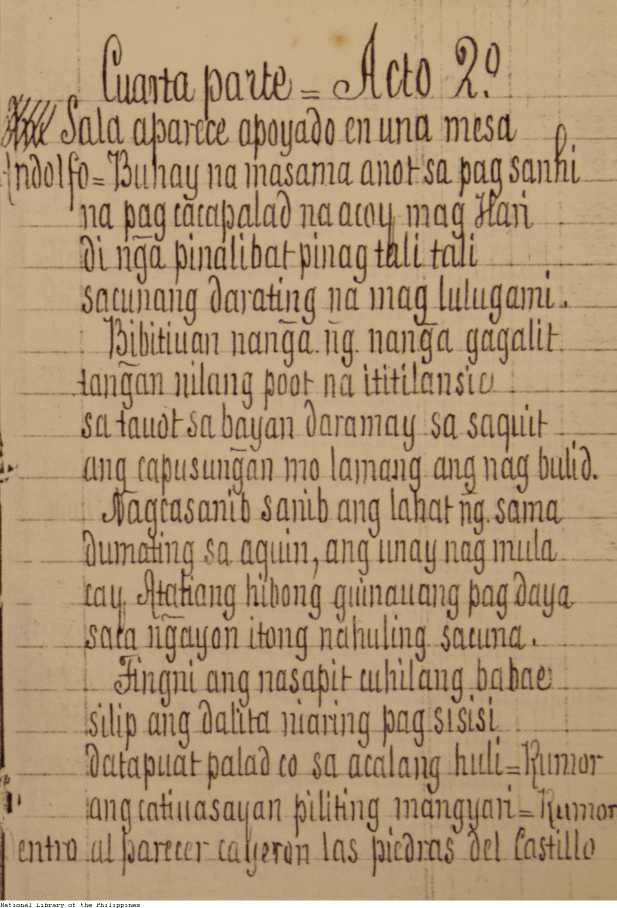 Cuarta parte = Acto 2º.
Sala aparece apoyado en una mesa
Andolfo = Buhay na masama anot sa pag sanhi
na pag cacapalad na acoy mag Hari
di nḡa pinalibat pinag tali tali
sacunang darating na mag lulugami.
Bibitiuan nanḡa. nḡ. nanḡa gagalit
tanḡan nilang poot na ititilansic
sa tauot sa bayan daramay sa saquit
ang capusunḡan mo lamang ang nag bulid.
Nagcasanib sanib ang lahat nḡ. sama
dumating sa aquin, ang unay nag mula
cay Atatiang hibong guinauang pag daya
saca nḡayon itong nahuling sacuna.
Tingni ang nasapit cuhilang babae
silip ang dalita niaring pag sisisi
datapuat palad co sa acalang huli = Rumor
ang catiuasayan piliting mangyari = Rumor
dentro al parecer cayeron las piedras del Castillo
National Library of the Philippines